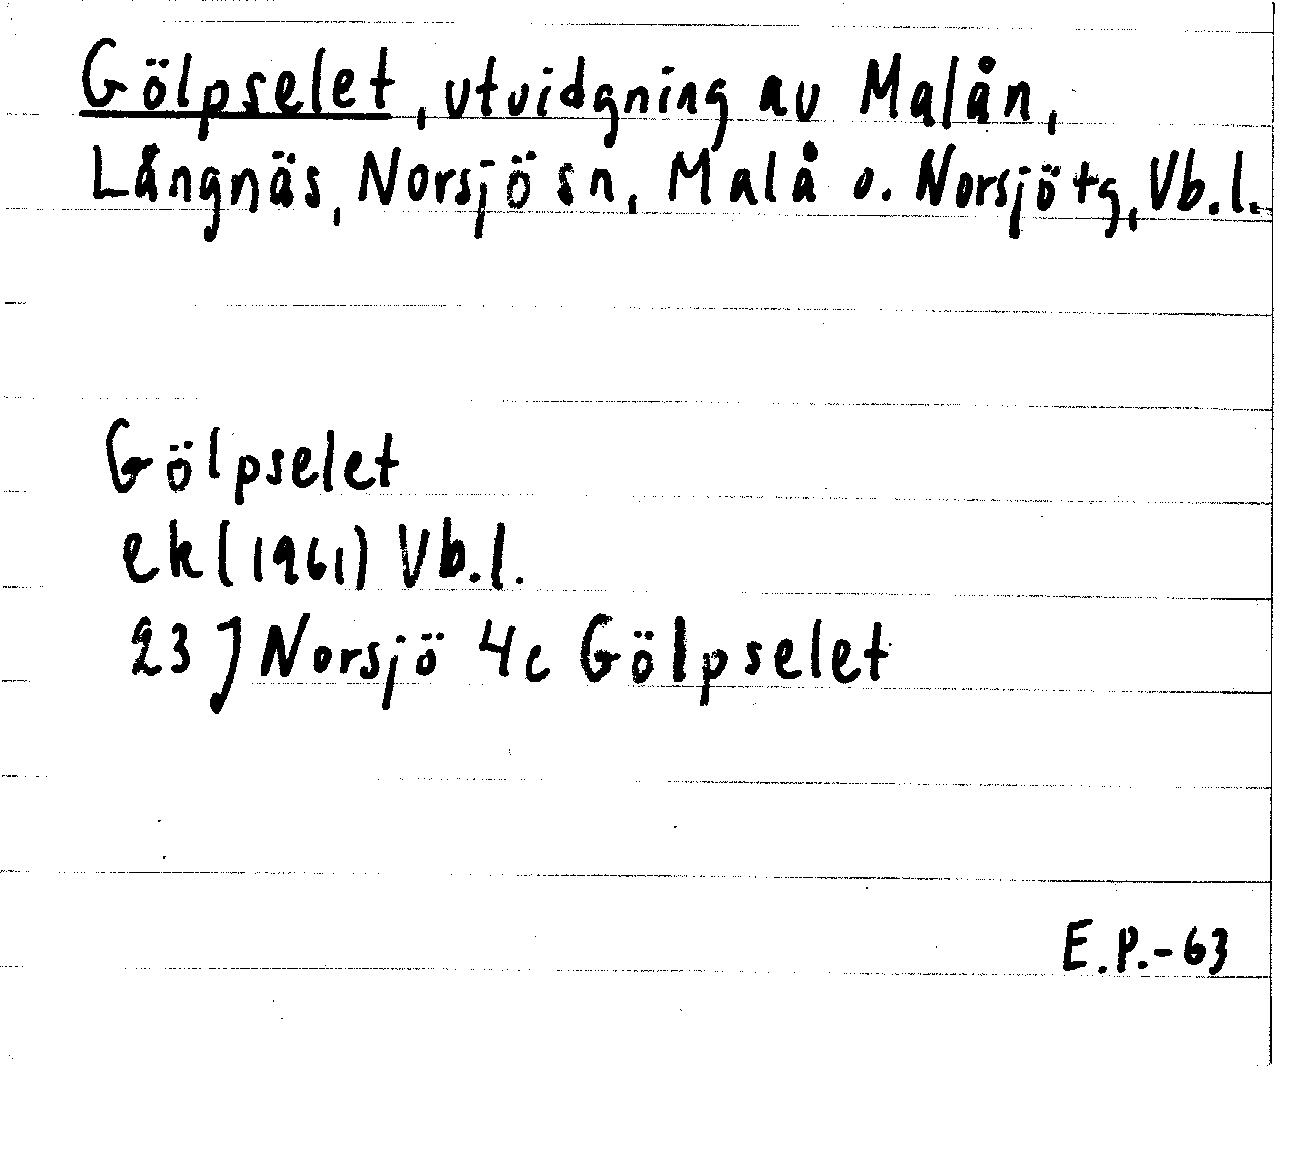 Gölpselet, utvidgning av Malån,
Långnäs, Norsjö sn, Malå o. Norsjö tg, Vb.l.
Gölpselet
ek (1961) Vb.l.
23 J Norsjö 4c Gölpselet
E.P.-63